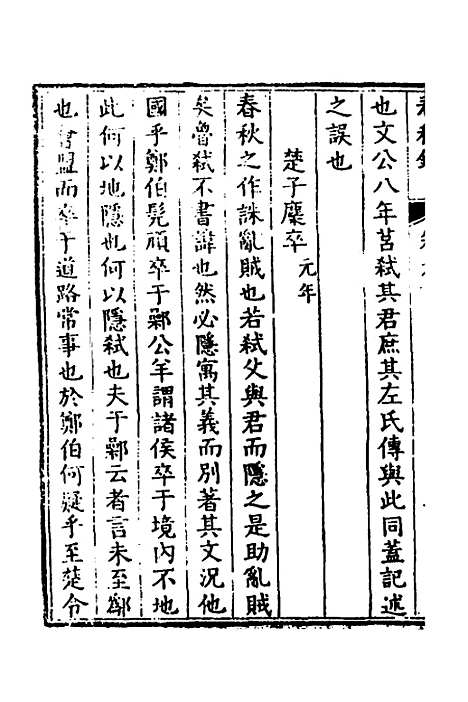 也文公八年莒弒其君庶其左氏傳與此同蓋記述
之誤也
楚子麇卒元年
春秋之作誅亂賊也若弒父與君而隱之是助亂賊
矣魯弒不書諱也然必隱寓其義而別著其文況他
國乎鄭伯髡頑卒于鄵公羊謂諸侯卒于境內不地
此何以地隱也何以隱弒也夫于鄵云者言未至鄵
也書盟而卒于道路常事也於鄭伯何疑乎至楚令